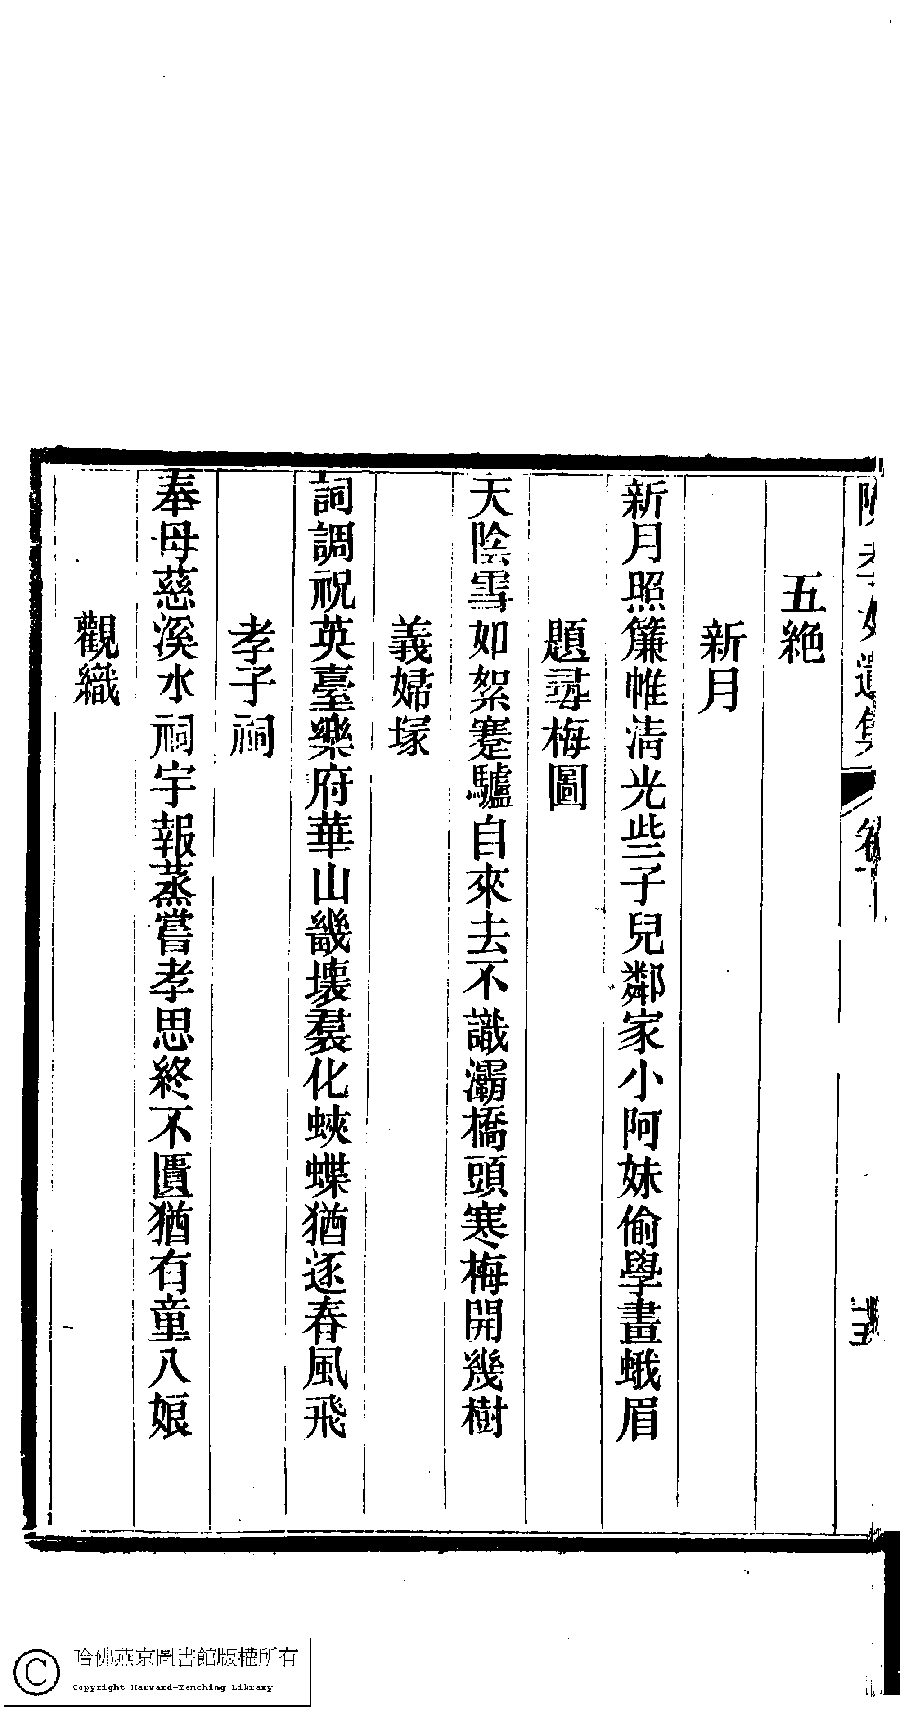 五絶
新月
新月照簾帷清光些子兒鄰家小阿妹偷學畫蛾眉
題尋梅圖
天陰雪如絮蹇驢自來去不識灞橋頭寒梅開幾樹
義婦塚
詞調祝英臺樂府華山畿壞裠化蛺蝶猶逐春風飛
孝子祠
奉母慈溪水祠宇報蒸嘗孝思終不匱猶有童八娘
觀織
哈佛燕京圖書館版權所有
Copyright Harvard-Yenching Library